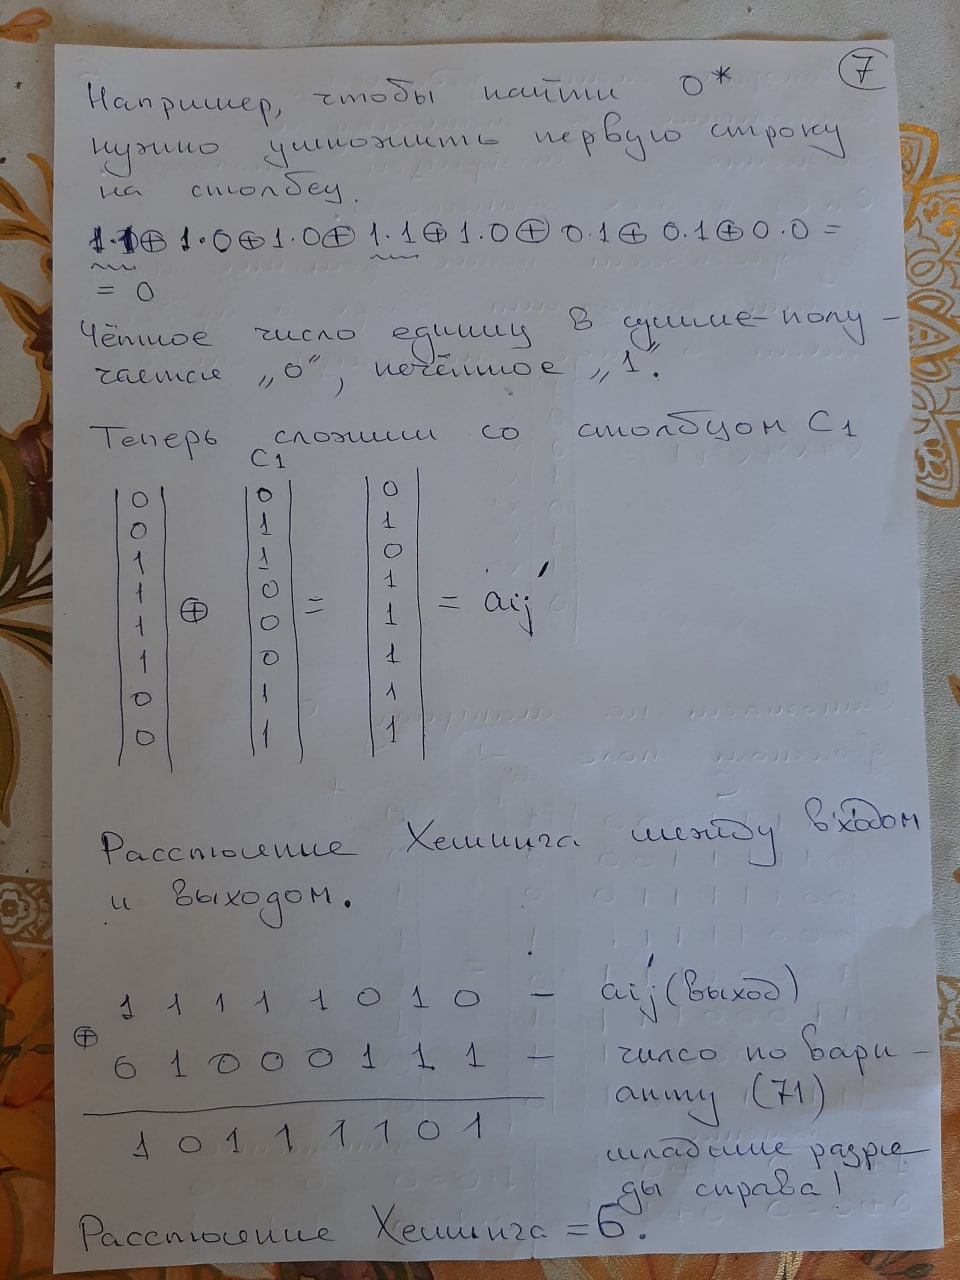 7
Например, чтобы найти 0*
нужно умножить первую строку
на столбец.
1·1⊕1·0⊕1·0⊕1·1⊕1·0⊕0·1⊕0·1⊕0·0=
= 0
Чётное число единиц в сумме-полу-
чается „0", нечётное „1".
Теперь сложим со столбцом C1
C1
0 0 0
0 1 1
1 1 0
1 0 1
1 ⊕ 0 = 1 = aij'
1 0 1
0 1 1
0 1 1
Расстояние Хемминга между входом
и выходом.
1 1 1 1 1 0 1 0 - aij'(выход)
⊕
0 1 0 0 0 1 1 1 - чилсо по вари-
анту (71)
1 0 1 1 1 1 0 1
младшие разря
ды справа!
Расстояние Хемминга = 6.